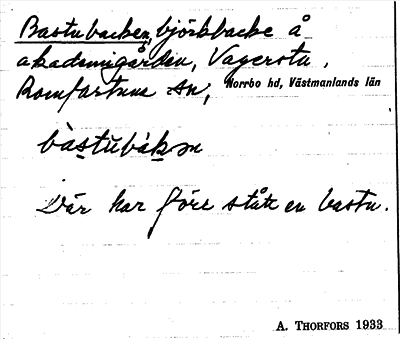 Bastubacken, björkbacke å
akademigården, Vagersta,
Romfartuna sn, Norrbo hd, Västmanlands län
bàstubàkən
Där har förr stått en bastu.
A. THORFORS 1933